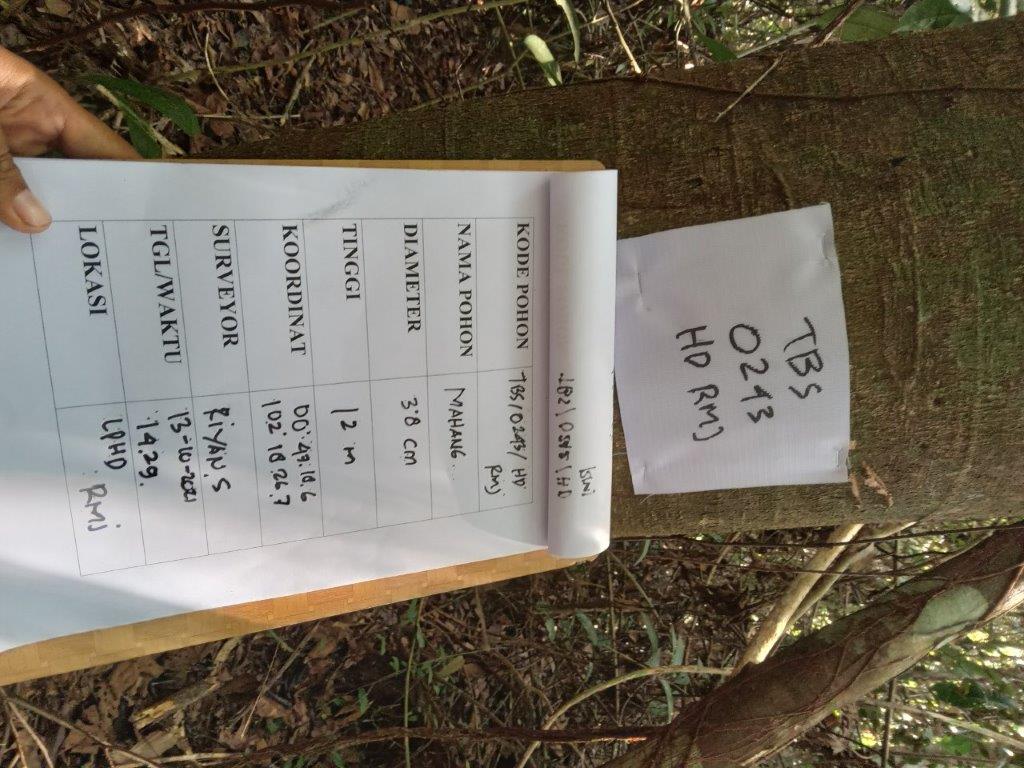 TBS
0243
HD RMJ
KODE POHON TBS/0243/ HD
RMJ
NAMA POHON MAHANG...
DIAMETER 3.8 cm
TINGGI 12 m
KOORDINAT 00°.47.18.6
102° 18 26.7
SURVEYOR RIYAN.S
TGL/WAKTU 13-10-2021
14.29.
LOKASI LPHD
RMJ